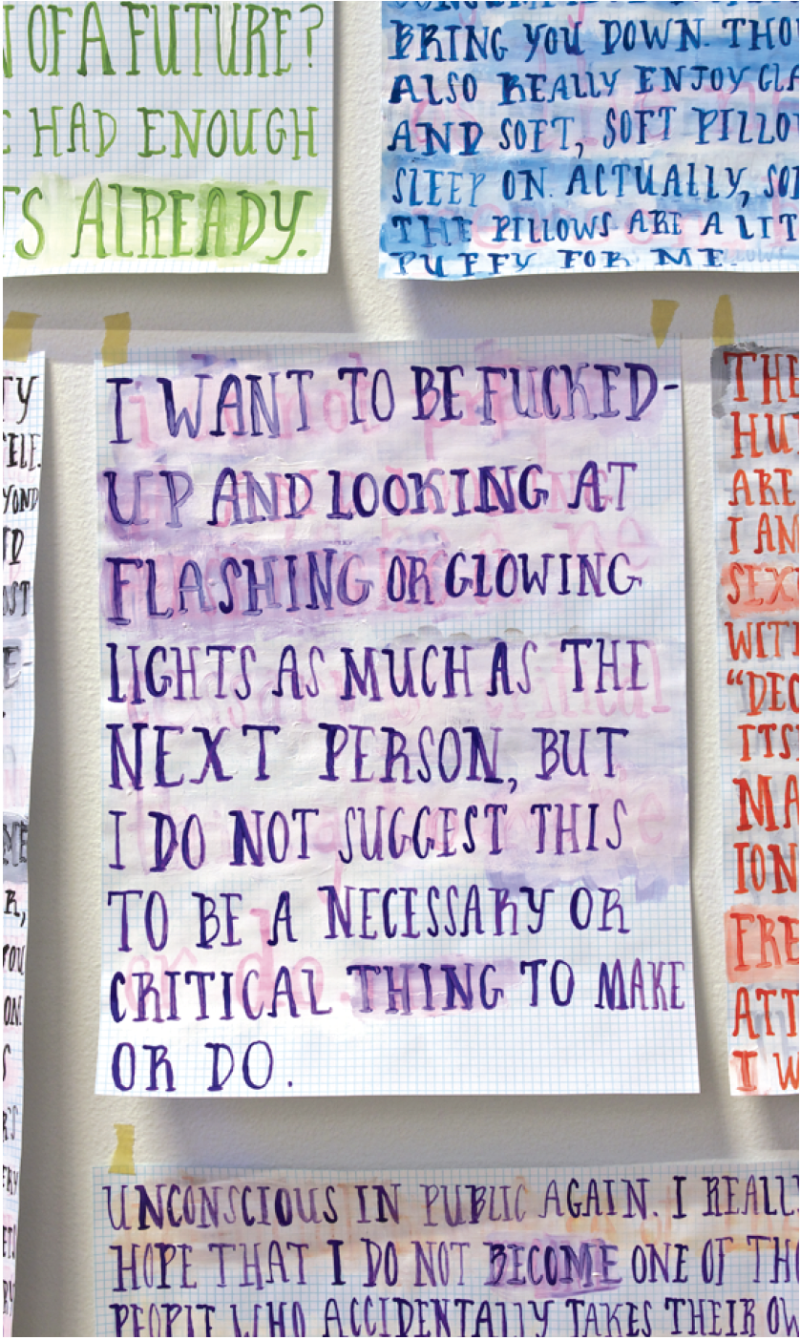 OF A FUTURE?
HAD ENOUGH
ALREADY.
BRING YOU DOWN. THOU
ALSO REALLY ENJOY CLA
AND SOFT, SOFT PILLO
SLEEP ON. ACTUALLY, SO
THE PILLOWS ARE A LIT
PUFFY FOR ME.
TY
ELF.
YOND
OST
R,
YOU
ON.
I WANT TO BE FUCKED-
UP AND LOOKING AT
FLASHING OR GLOWING
LIGHTS AS MUCH AS THE
NEXT PERSON, BUT
I DO NOT SUGGEST THIS
TO BE A NECESSARY OR
CRITICAL THING TO MAKE
OR DO.
THE
HU
ARE
I AM
SEX
WITH
"DEC
ITS
MA
ION
FRE
ATT
I W
UNCONSCIOUS IN PUBLIC AGAIN. I REALLY
HOPE THAT I DO NOT BECOME ONE OF THO
PEOPLE WHO ACCIDENTALLY TAKES THEIR OW